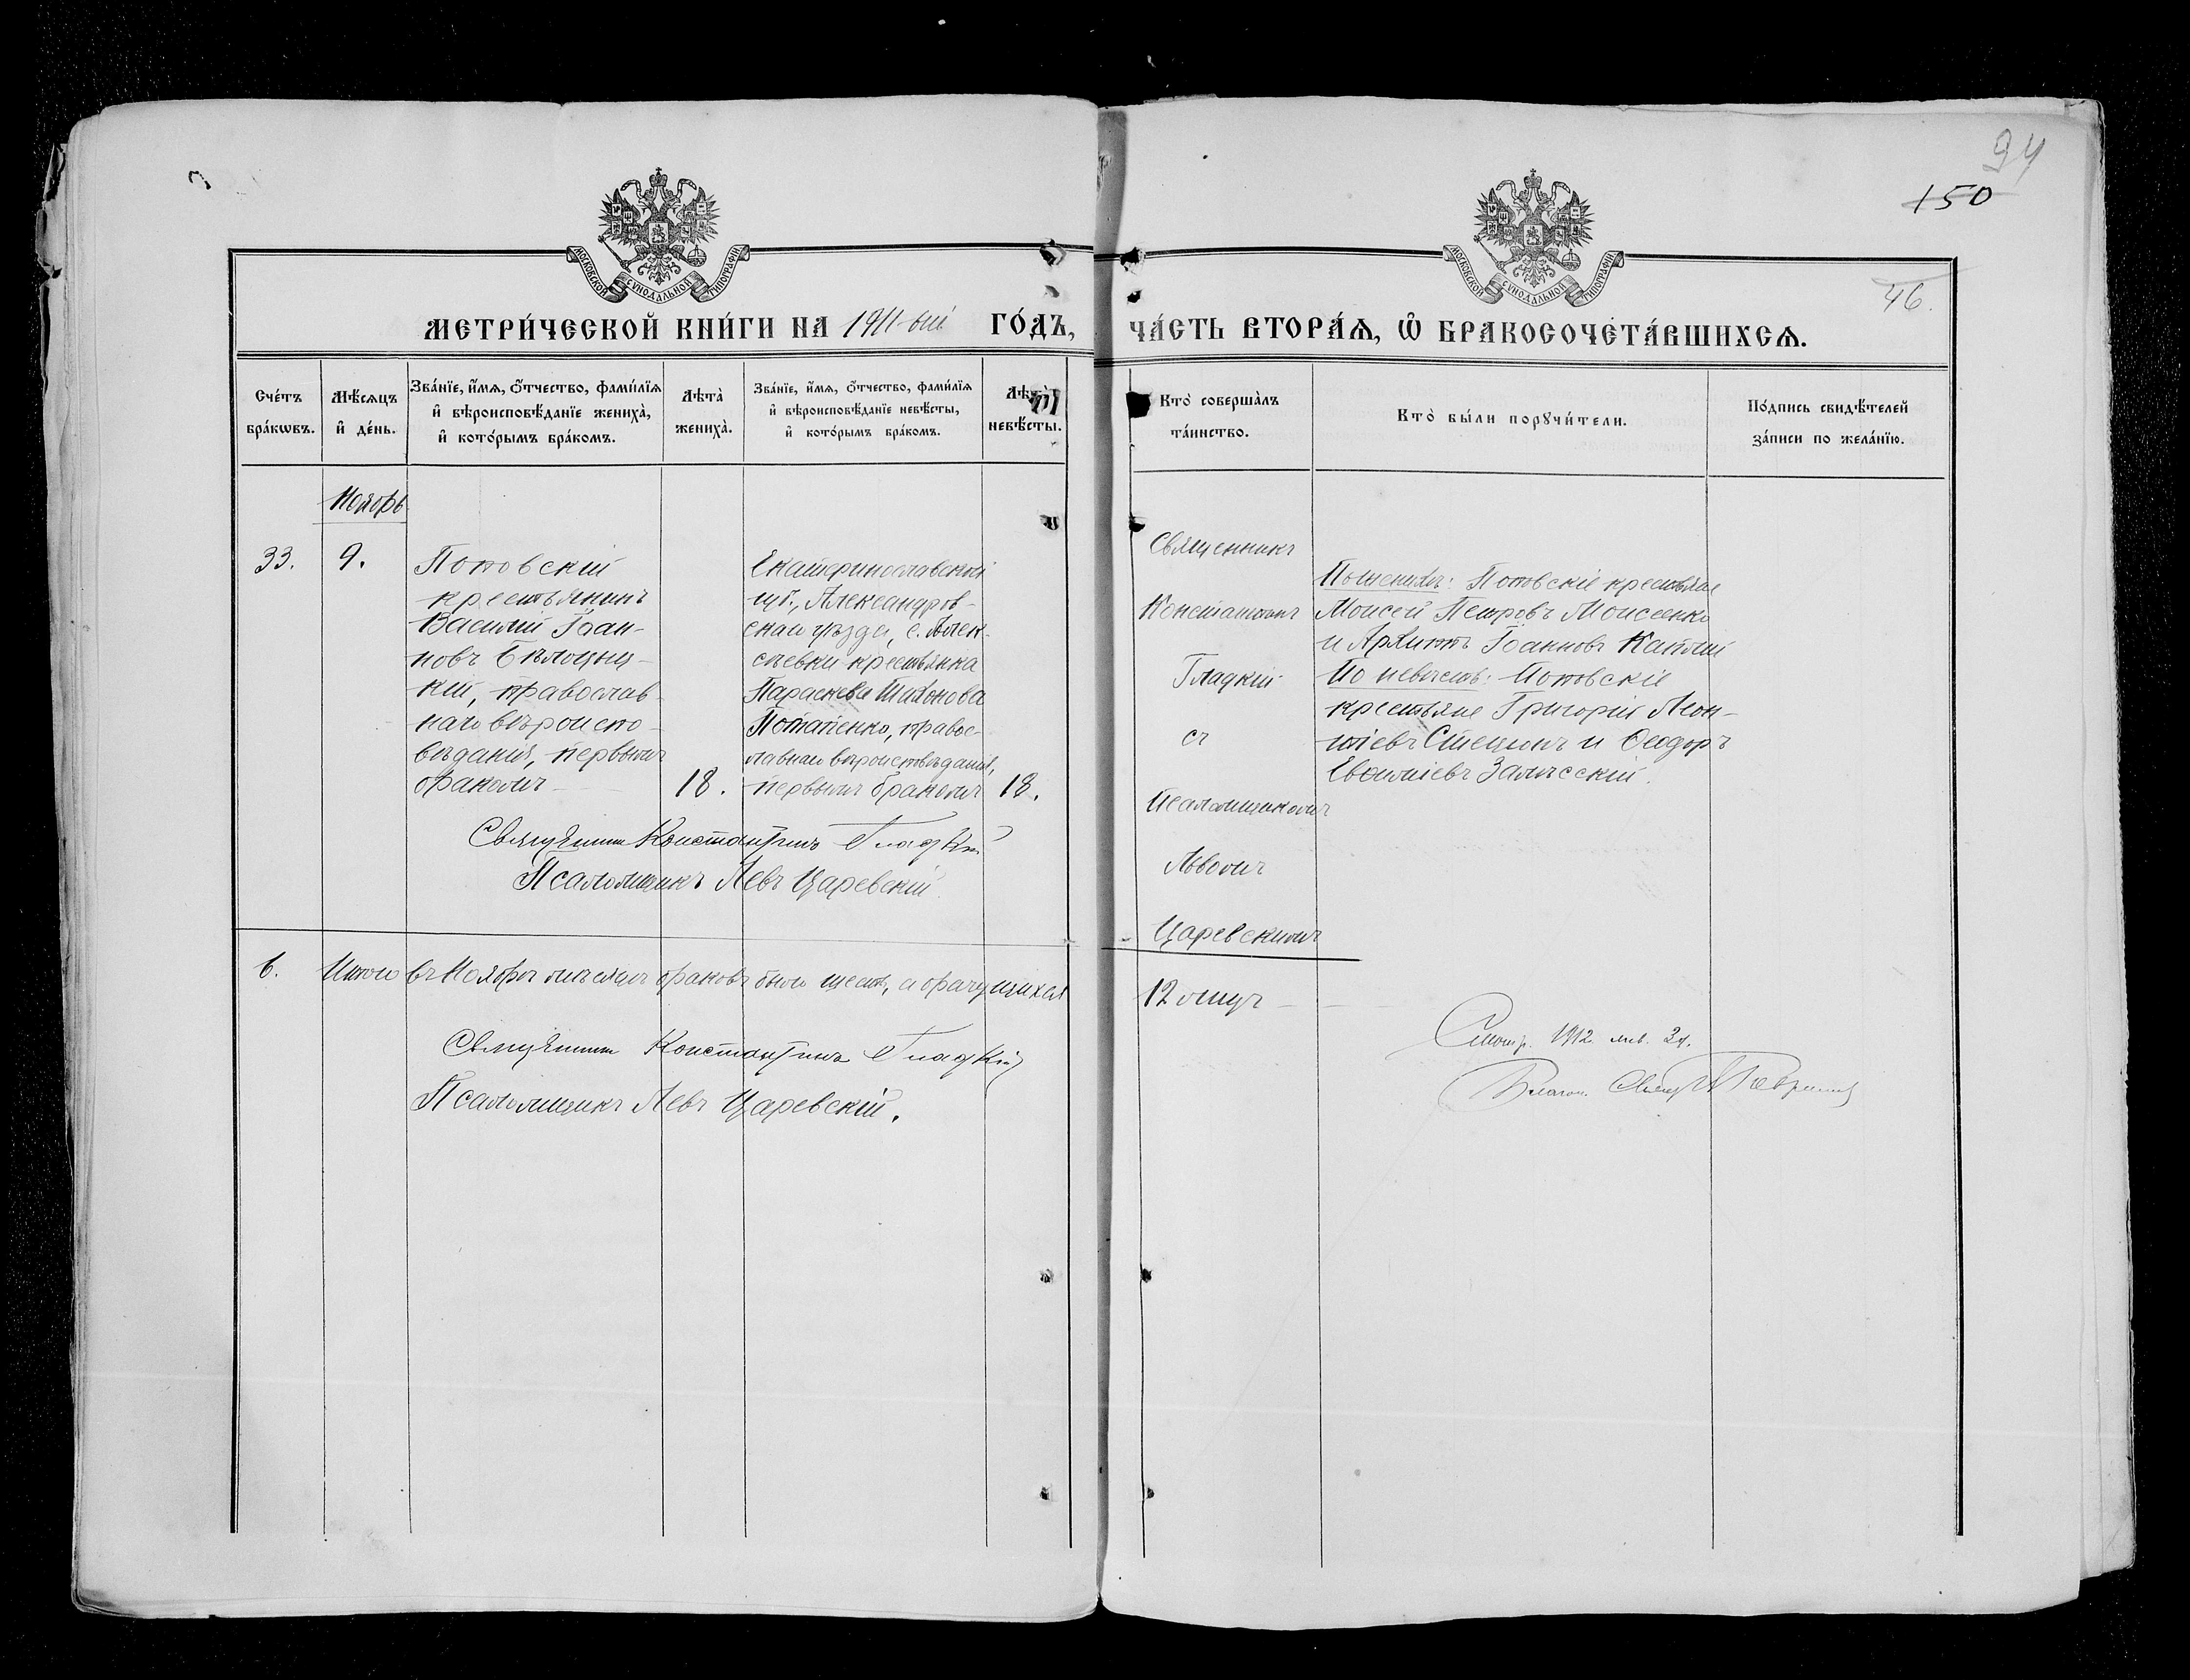 94
150
46.
МОСКОВСКОЙ СѴНОДАЛЬНОЙ ТИПОГРАФІИ
МОСКОВСКОЙ СѴНОДАЛЬНОЙ ТИПОГРАФІИ
МЕТРИ́ЧЕСКОЙ КНИ́ГИ НА 1911-ый ГО́ДЪ,
ЧА́СТЬ ВТОРА́Ѧ, Ѡ҆ БРАКОСОЧЕТА́ВШИХСѦ.
Сче́тъ
бра́кѡвъ.
Мѣ́сѧцъ
и҆ де́нь.
Зва́нїе, и҆́мѧ, ѻ҆́тчество, фами́лїѧ
и҆ вѣроисповѣ́данїе жениха̀,
и҆ кото́рымъ бра́комъ.
Лѣта̀
жениха̀.
Зва́нїе, и҆́мѧ, ѻ҆́тчество, фами́лїѧ
и҆ вѣроисповѣ́данїе невѣ́сты,
и҆ кото́рымъ бра́комъ.
Лѣта̀
невѣ́сты.
Кто̀ соверша̀лъ
та́инство.
Кто̀ бы́ли порꙋчи́тели.
По́дпись свидѣ́телей
за́писи по жела́нїю.
Ноябрь
33.
9.
Поповскій
крестьянинъ
Василій Іоан-
новъ Бѣлоцыц-
кій, православ-
наго вѣроиспо-
вѣданія, первымъ
бракомъ
18.
Екатеринославской
губ., Александров-
скаго уѣзда, с. Алек-
сѣевки крестьянка
Параскева Тихонова
Потапенко, правос-
лавнаго вѣроисповѣданія,
первымъ бракомъ
18.
Священникъ
Константинъ
Гладкій
съ
Псаломщикомъ
Львомъ
Царевскимъ
По женихѣ: Поповскіе крестьяне
Моисей Петровъ Моисеенко
и Архиппъ Іоанновъ
По невѣстѣ: Поповскіе
крестьяне Григорій Леон-
тіевъ и Ѳеодоръ
Евѳиміевъ Залѣсскій.
Священникъ Константинъ Гладкій
Псаломщикъ Левъ Царевскій.
6.
Итого въ Ноябрѣ мѣсяцѣ браковъ было шесть, а брачущихся
12 лицъ
Священникъ Константинъ Гладкій
Псаломщикъ Левъ Царевскій.
Смотр. 1912. янв. 24.
Благоч. Свящ.